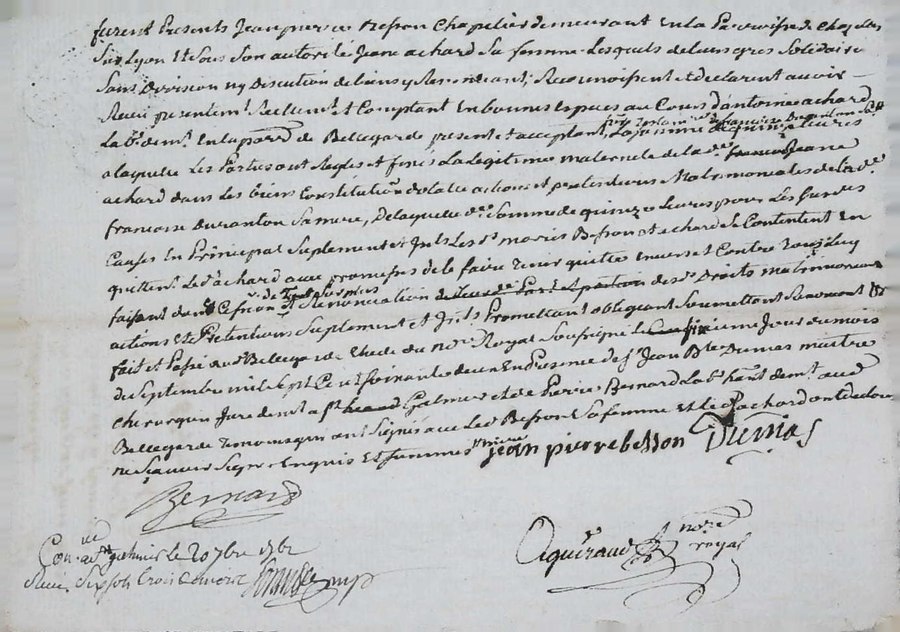 furent Presents Jean pierre Besson Chapelier demeurant En la Parroisse de Chazelles
Sur Lyon Et Sous Son autorité Jeane achard Sa femme Lesquels de leurs gres Solidaire
Sans Division ny Discution de biens y Renonceant, Reconnoissent et declarent avoir
Receu presentemt. Reellemt. et Comptant En bonnes Especes au Cours d'antoine achard
Lab. demt. En la parr. de Bellegarde present et acceptant, La somme de quinze Livres
a laquelle Les Parties ont Reglés et fixés La Legitime maternelle de lad. Jeane
achard dans Les biens Constitution dotalle actions et pretentions Matrimoniales de lad.
francoise Duranton Sa mere, De laquelle de. Somme de quinze Livres pour Les Susdes
Causes En Principal Suplement et Ints Les st. mariés Besson et achard Se Contentent En
quittent Led. achard avec promesses de le faire Tenir quitte Envers et Contre Tous
faisant Cession et Renonciation de ses. Droits matrimoniaux
actions et Pretentions Suplement et Ints. Promettant obligeant Soumettant Renoncant
fait et Passé aud. Bellegarde Etude du nore Royal Soussigné Le Jour du mois
de Septembre mil Sept Cent Soixante deux En Presence de Sr. Jean Bte. Dumas maitre
chirurgien Juré demt. a St. Galmier et de Pierre Bernard Lab. hant. demt. aud.
Bellegarde Temoins qui ont Signés avec Led. Besson Sa femme Et led. achard ont declaré
ne Sçavoir Signer Enquis Et Sommés
jean pierre besson Dumas
Bernard
Con. a St. galmier le 20 7bre 1762
Receu Six Sols
Aiguiraud nore
royal